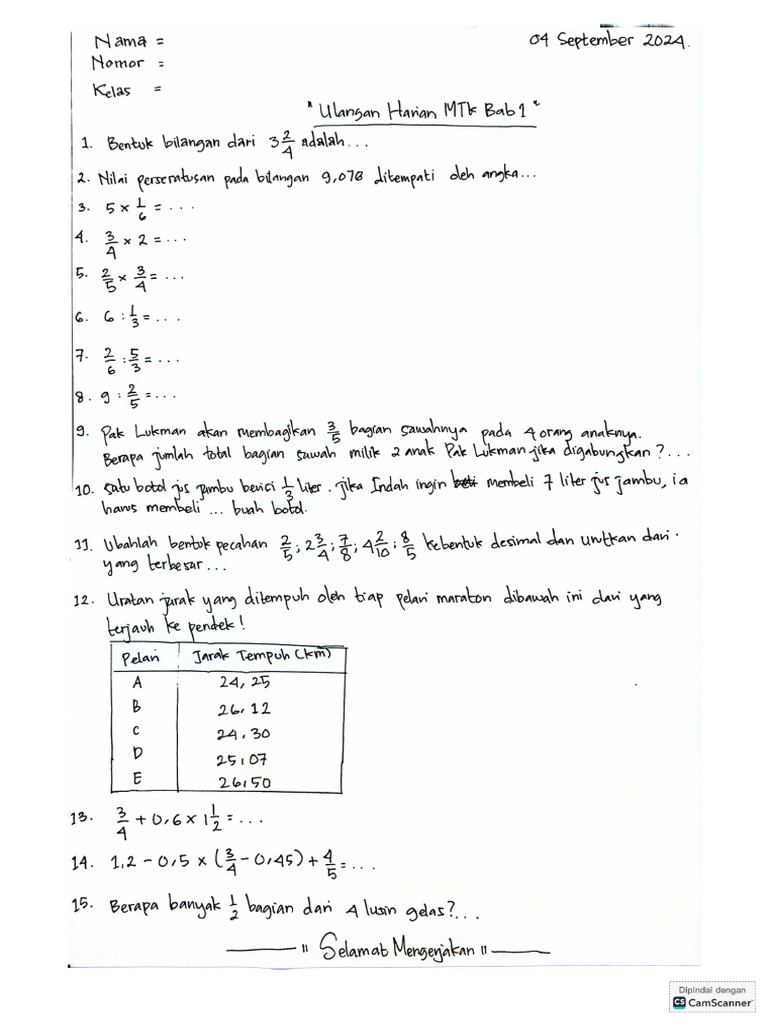 Nama = 04 September 2024.
Nomor :
Kelas =
"Ulangan Harian MTK Bab 1"
1. Bentuk bilangan dari 3 2/4 adalah...
2. Nilai perseratusan pada bilangan 9,078 ditempati oleh angka...
3. 5 × 1/6 = ...
4. 3/4 × 2 = ...
5. 2/5 × 3/4 = ...
6. 6 : 1/3 = ...
7. 2/6 : 5/3 = ...
8. 9 : 2/5 = ...
9. Pak Lukman akan membagikan 3/5 bagian sawahnya pada 4 orang anaknya.
Berapa jumlah total bagian sawah milik 2 anak Pak Lukman jika digabungkan?...
10. Satu botol jus jambu berisi 1/3 liter. jika Indah ingin membeli 7 liter jus jambu, ia
harus membeli ... buah botol.
11. Ubahlah bentuk pecahan 2/5 ; 2 3/4 ; 7/8 ; 4 2/10 ; 8/5 kebentuk desimal dan urutkan dari
yang terbesar...
12. Uratan jarak yang ditempuh oleh tiap pelari maraton dibawah ini dari yang
terjauh ke pendek!
Pelari Jarak Tempuh (km)
A 24,25
B 26,12
C 24,30
D 25,07
E 26,50
13. 3/4 + 0,6 × 1 1/2 = ...
14. 1,2 - 0,5 × (3/4 - 0,45) + 4/5 = ...
15. Berapa banyak 1/2 bagian dari 4 lusin gelas?...
" Selamat Mengerjakan "
Dipindai dengan
CS CamScanner